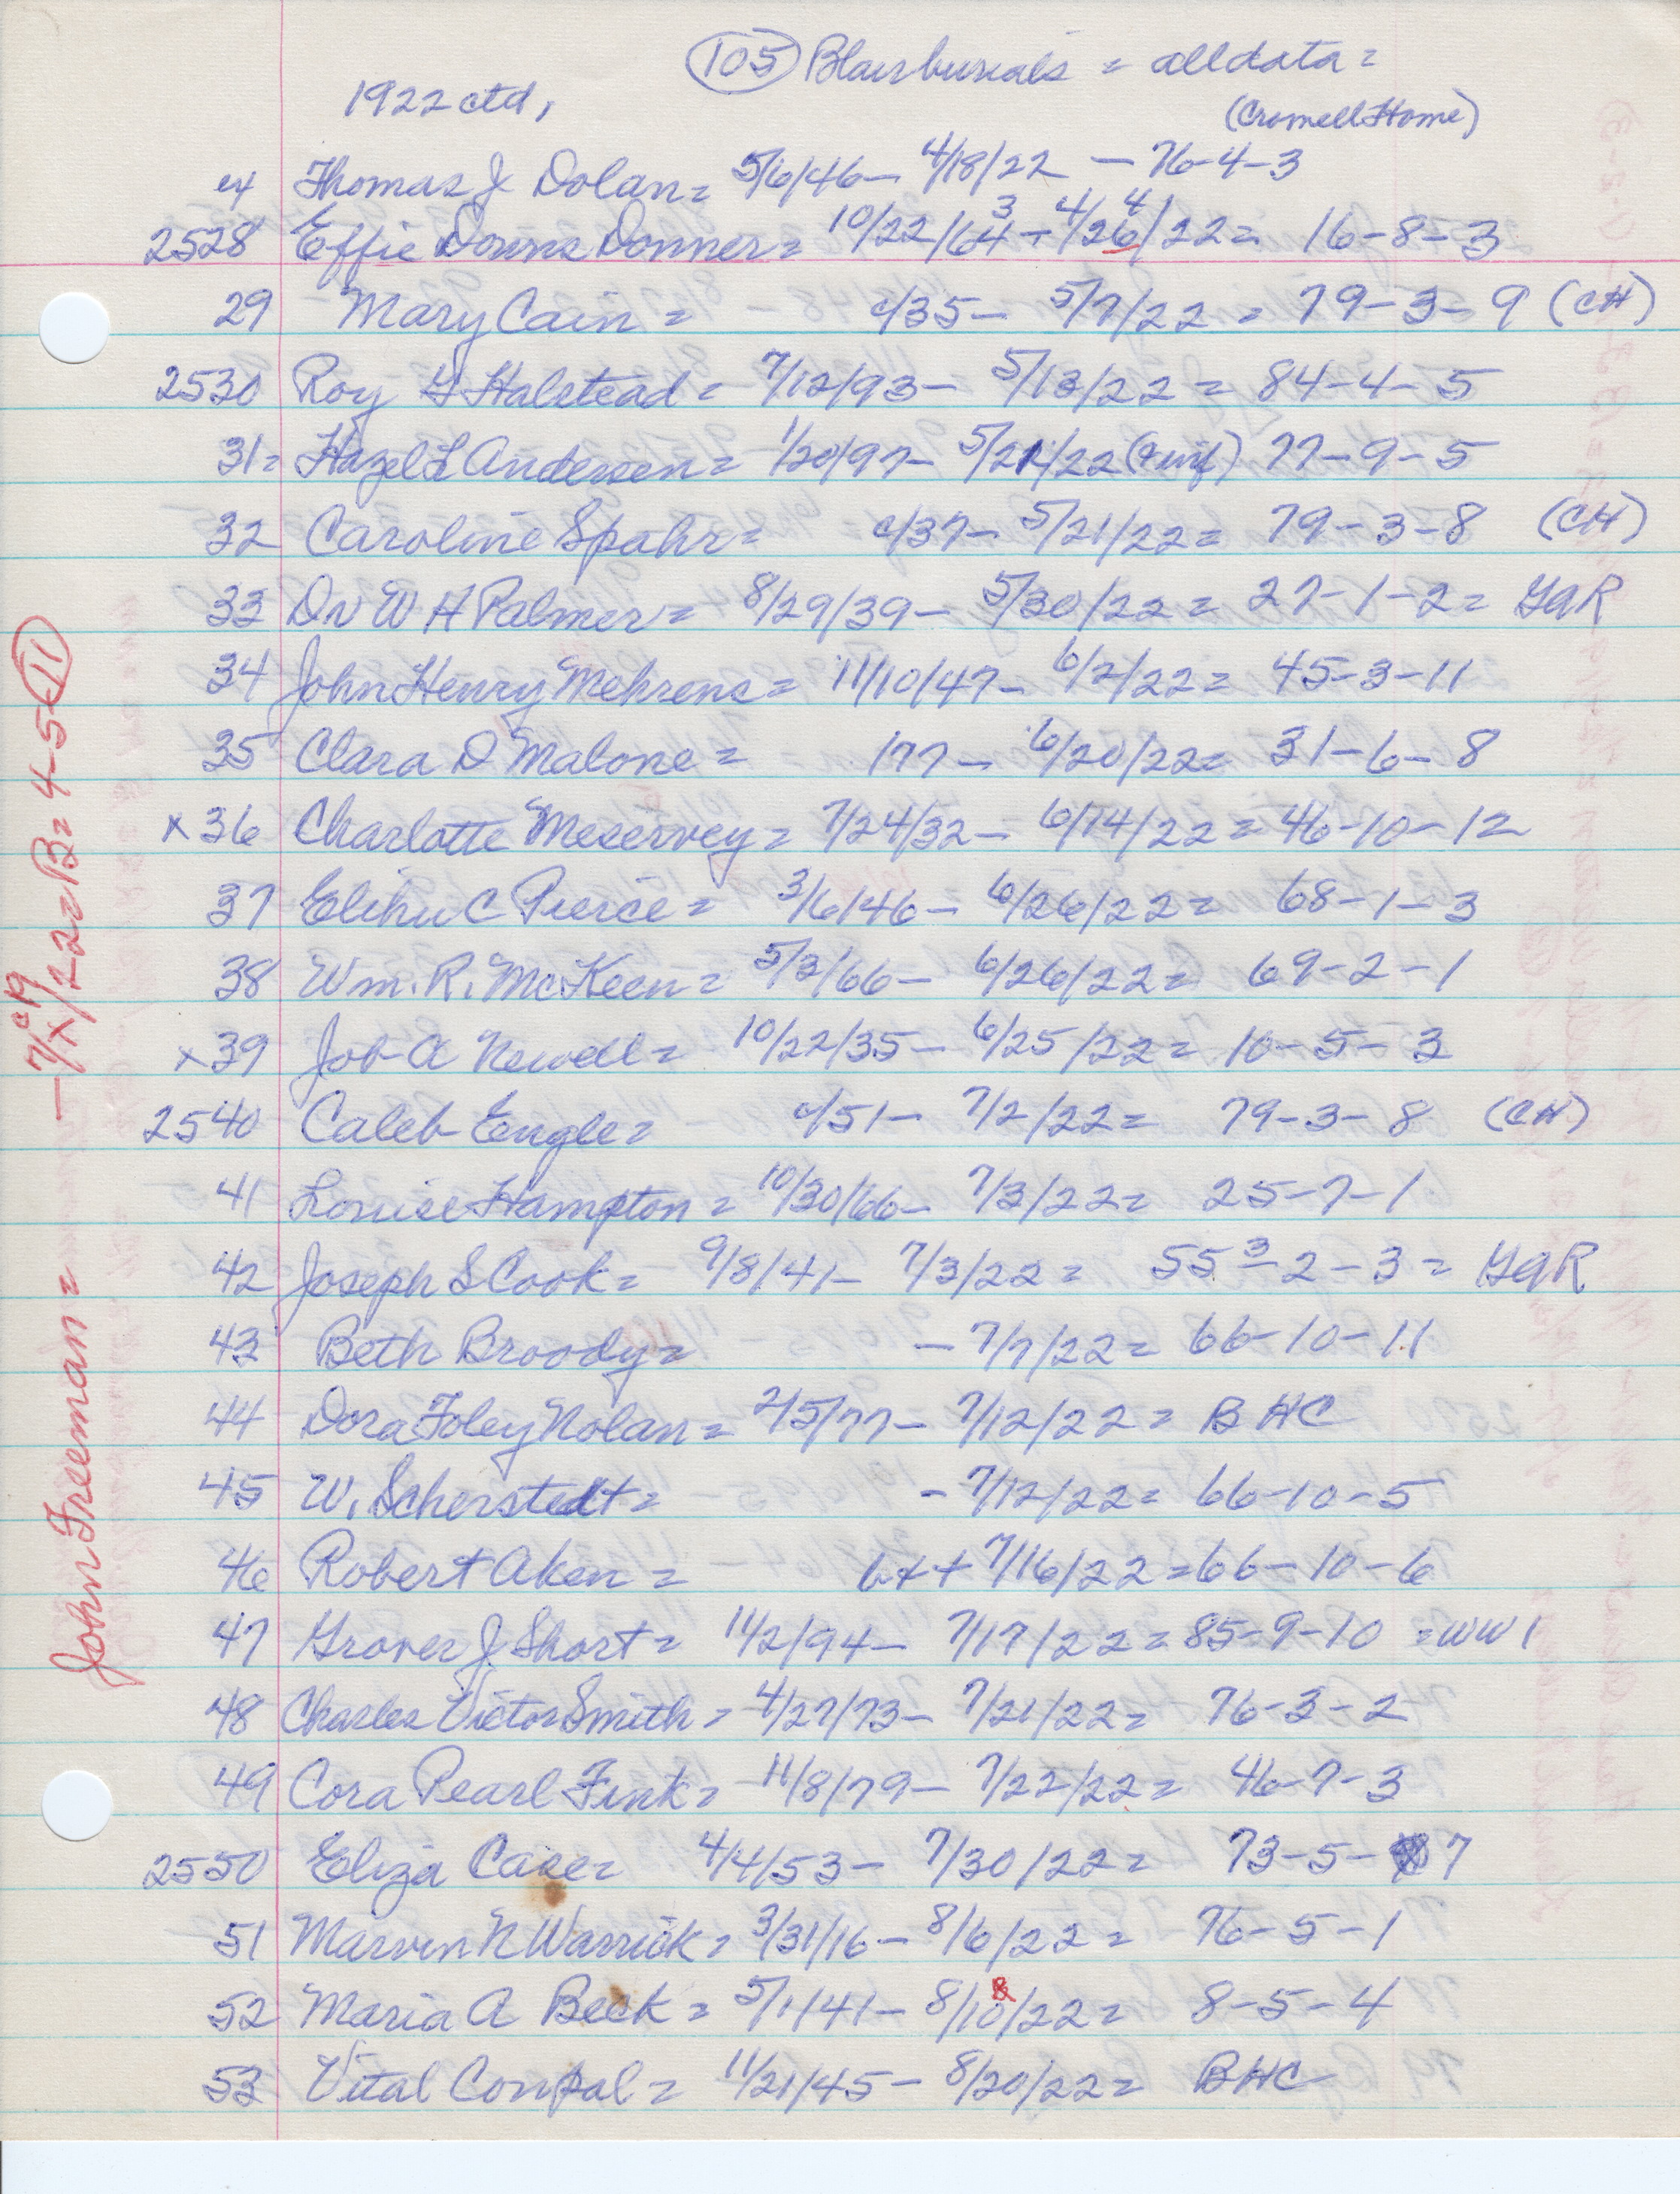 (105) Blair burials = all data =
1922 ctd, (Cromell Home)
ex Thomas J Dolan = 5/6/46 - 4/18/22 - 76-4-3
2528 Effie Downs Donner = 10/22/64 3 - 4/26 4/22 = 16-8-3
29 Mary Cain = c/35 - 5/7/22 = 79-3-9 (CH)
2530 Roy G Halstead = 7/12/93 - 5/13/22 = 84-4-5
31 = Hazel L Andersen = 1/20/97 - 5/21/22 (& inf) 77-9-5
32 Caroline Spahr = c/37 - 5/21/22 = 79-3-8 (CH)
33 Dr W H Palmer = 8/29/39 - 5/30/22 = 27-1-2 = GAR
34 John Henry Mehrens = 11/10/47 - 6/2/22 = 45-3-11
35 Clara D Malone = 177 - 6/20/22 = 31-6-8
x 36 Charlotte Meservey = 7/24/32 - 6/14/22 = 46-10-12
37 Elihu C Pierce = 3/6/46 - 6/26/22 = 68-1-3
38 Wm. R. McKeen = 5/3/66 - 6/26/22 = 69-2-1
x 39 Job A Newell = 10/22/35 - 6/25/22 = 10-5-3
2540 Caleb Engle = c/51 - 7/2/22 = 79-3-8 (CH)
41 Louise Hampton = 10/30/66 - 7/3/22 = 25-7-1
42 Joseph S Cook = 9/8/41 - 7/3/22 = 55 3-2-3 = GAR
43 Beth Broody = - 7/7/22 = 66-10-11
44 Dora Foley Nolan = 2/5/77 - 7/12/22 = BHC
45 W. Scherstedt = - 7/12/22 = 66-10-5
46 Robert Aken = b++ 7/16/22 = 66-10-6
47 Grover J Short = 11/2/94 - 7/17/22 = 85-9-10 = WW1
48 Charles Victor Smith = 4/27/73 - 7/21/22 = 76-3-2
49 Cora Pearl Fink = 11/8/79 - 7/22/22 = 46-7-3
2550 Eliza Case = 4/4/53 - 7/30/22 = 73-5-7
51 Marvin N Warrick = 3/31/16 - 8/6/22 = 76-5-1
52 Maria A Beck = 5/1/41 - 8/10 8/22 = 8-5-4
53 Vital Conpal = 11/21/45 - 8/20/22 = BHC
John Freeman = - 7/x c19/22 = B = 4-5-(11)